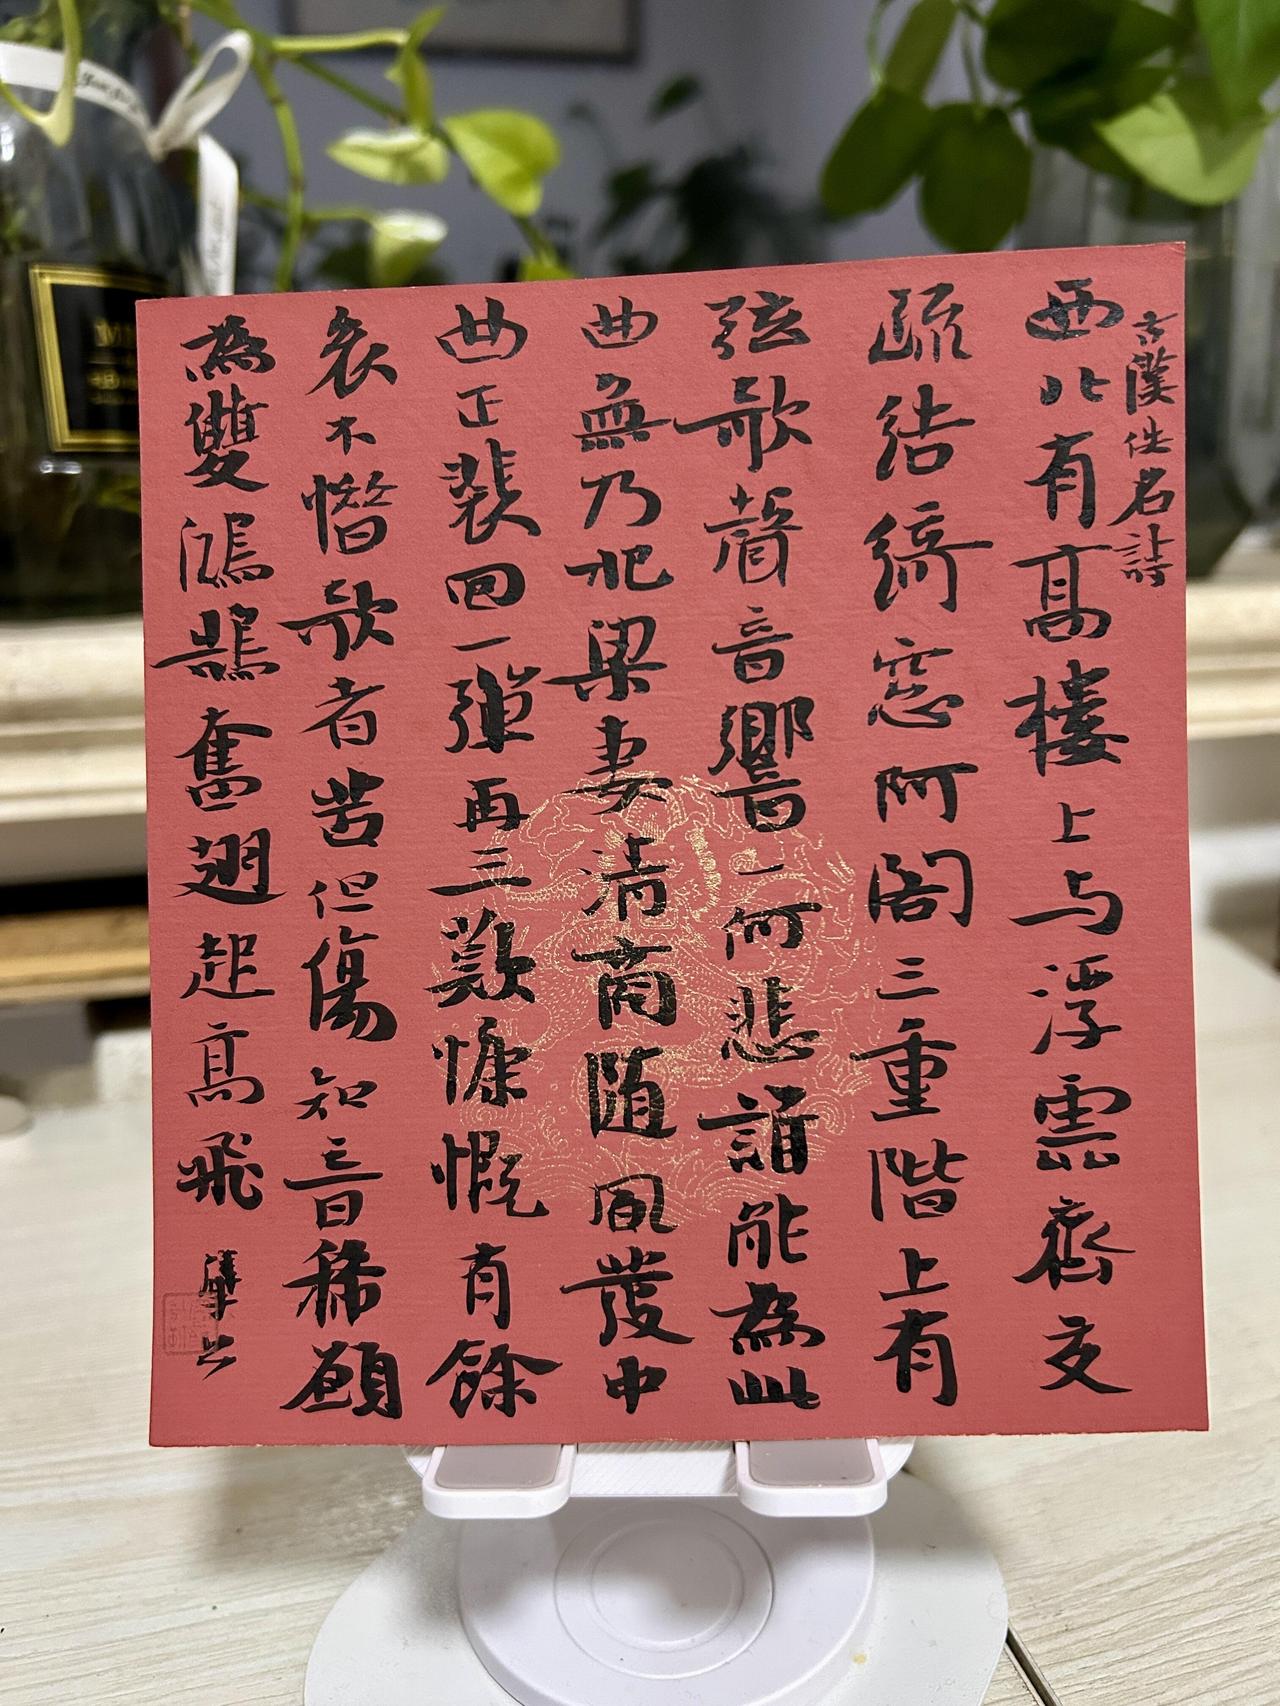 古漢佚名詩
西北有高樓上与浮雲齊交
疏结綺窓阿阁三重階上有
弦歌聲音響一何悲誰能為此
曲無乃杞梁妻清商随風發中
曲正裴回一彈再三歎慷慨有餘
哀不惜歌者苦但傷知音稀願
為雙鴻鵠奮翅起高飛